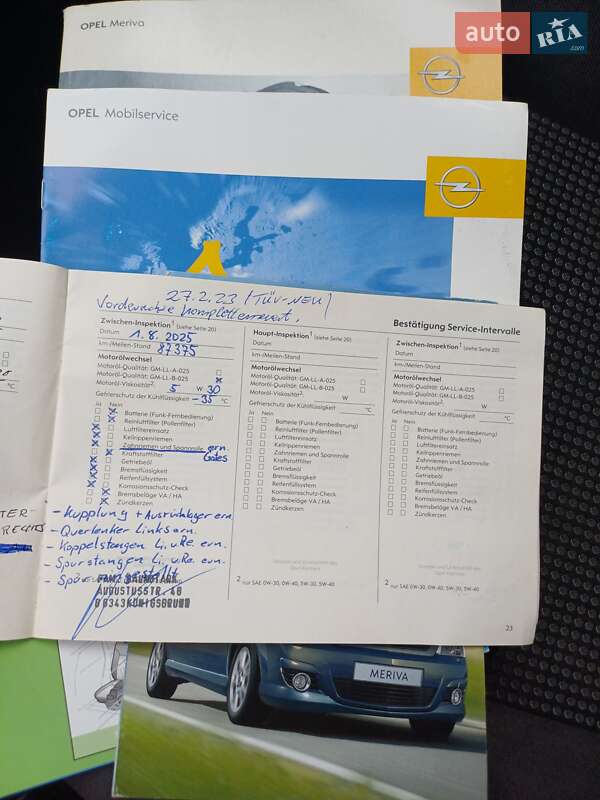 auto RIA .com
OPEL Meriva
OPEL Mobilservice
27.2.23 (TÜV-NEU)
Vorderachse komplett erneuert,
Bestätigung Service-Intervalle
Zwischen-Inspektion¹ (siehe Seite 20)
Datum 1.8.2025
km-/Meilen-Stand 87375
Motorölwechsel
Motoröl-Qualität: GM-LL-A-025
Motoröl-Qualität: GM-LL-B-025 x
Motoröl-Viskosität² 5 W 30
Gefrierschutz der Kühlflüssigkeit -35 °C
Ja Nein
Batterie (Funk-Fernbedienung)
Reinluftfilter (Pollenfilter)
Luftfiltereinsatz
Keilrippenriemen
Zahnriemen und Spannrolle ern.
Kraftstofffilter Gates
Getriebeöl
Bremsflüssigkeit
Reifenfüllsystem
Korrosionsschutz-Check
Bremsbeläge VA / HA
Zündkerzen
- Kupplung + Ausrücklager ern
- Querlenker Links ern.
- Koppelstangen Li. u. Re. ern.
- Spurstangen Li. u. Re. ern.
AUGUSTUSSTR. 48
Haupt-Inspektion¹ (siehe Seite 20)
Datum
km-/Meilen-Stand
Motorölwechsel
Motoröl-Qualität: GM-LL-A-025
Motoröl-Qualität: GM-LL-B-025
Motoröl-Viskosität² W
Gefrierschutz der Kühlflüssigkeit °C
Ja Nein
Batterie (Funk-Fernbedienung)
Reinluftfilter (Pollenfilter)
Luftfiltereinsatz
Keilrippenriemen
Zahnriemen und Spannrolle
Kraftstofffilter
Getriebeöl
Bremsflüssigkeit
Reifenfüllsystem
Korrosionsschutz-Check
Bremsbeläge VA / HA
Zündkerzen
2 nur SAE 0W-30, 0W-40, 5W-30, 5W-40
Zwischen-Inspektion¹ (siehe Seite 20)
Datum
km-/Meilen-Stand
Motorölwechsel
Motoröl-Qualität: GM-LL-A-025
Motoröl-Qualität: GM-LL-B-025
Motoröl-Viskosität² W
Gefrierschutz der Kühlflüssigkeit °C
Ja Nein
Batterie (Funk-Fernbedienung)
Reinluftfilter (Pollenfilter)
Luftfiltereinsatz
Keilrippenriemen
Zahnriemen und Spannrolle
Kraftstofffilter
Getriebeöl
Bremsflüssigkeit
Reifenfüllsystem
Korrosionsschutz-Check
Bremsbeläge VA / HA
Zündkerzen
2 nur SAE 0W-30, 0W-40, 5W-30, 5W-40
23
TER-
RECHTS
MERIVA